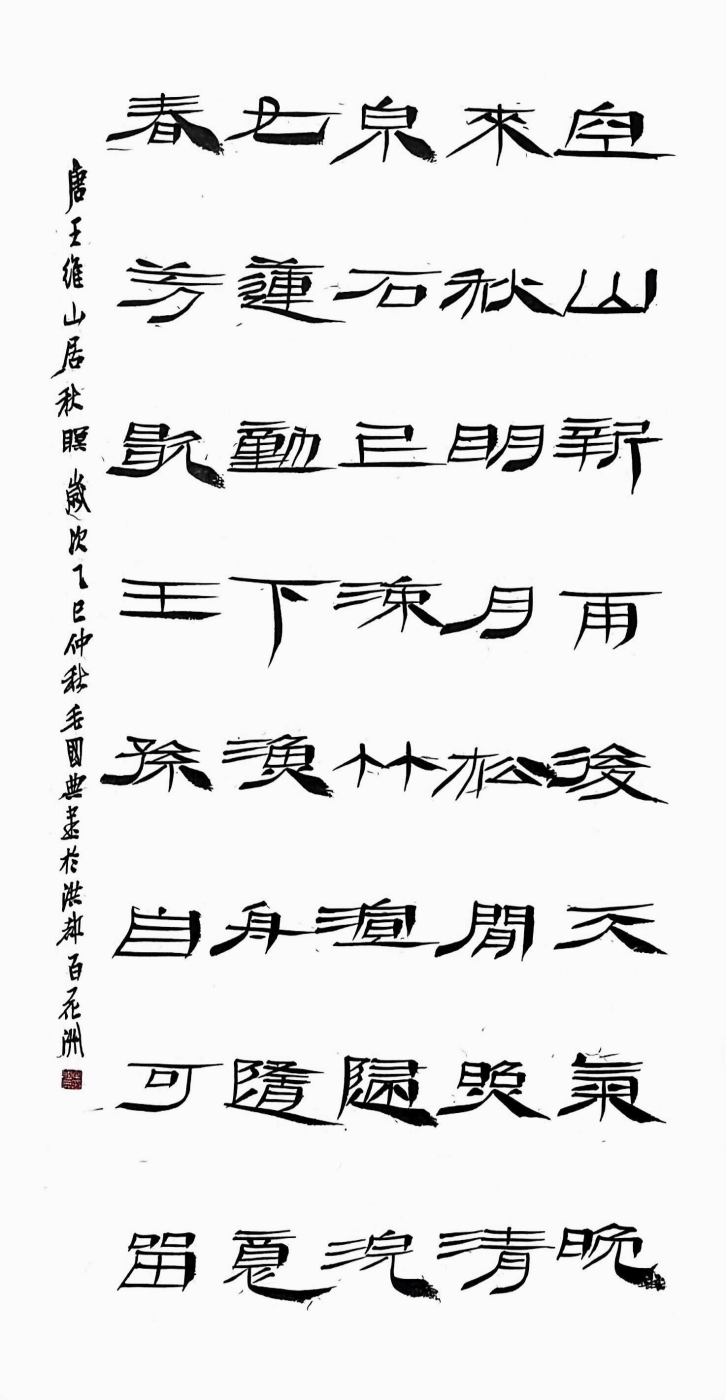 空山新雨後天氣晚
來秋明月松間照清
泉石上流竹喧歸浣
女蓮動下漁舟隨意
春芳歇王孫自可留
唐王維山居秋暝 歲次乙巳仲秋毛國典書於洪都百花洲